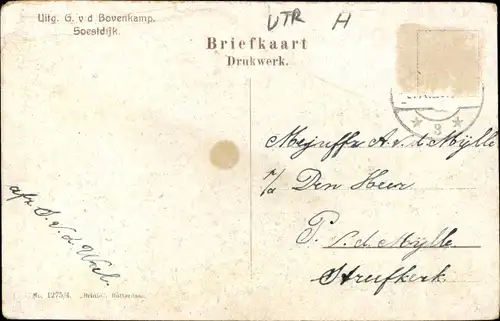 Uitg. G. v d Bovenkamp.
Soestdijk.
UTR H
Briefkaart
Drukwerk.
Mejuffr A. v. d. Mijlle
p/a Den Heer
P. v. d. Mijlle
Streefkerk.
afz. D. v. d. Wal.
No. 1275/4. Rotterdam.
3